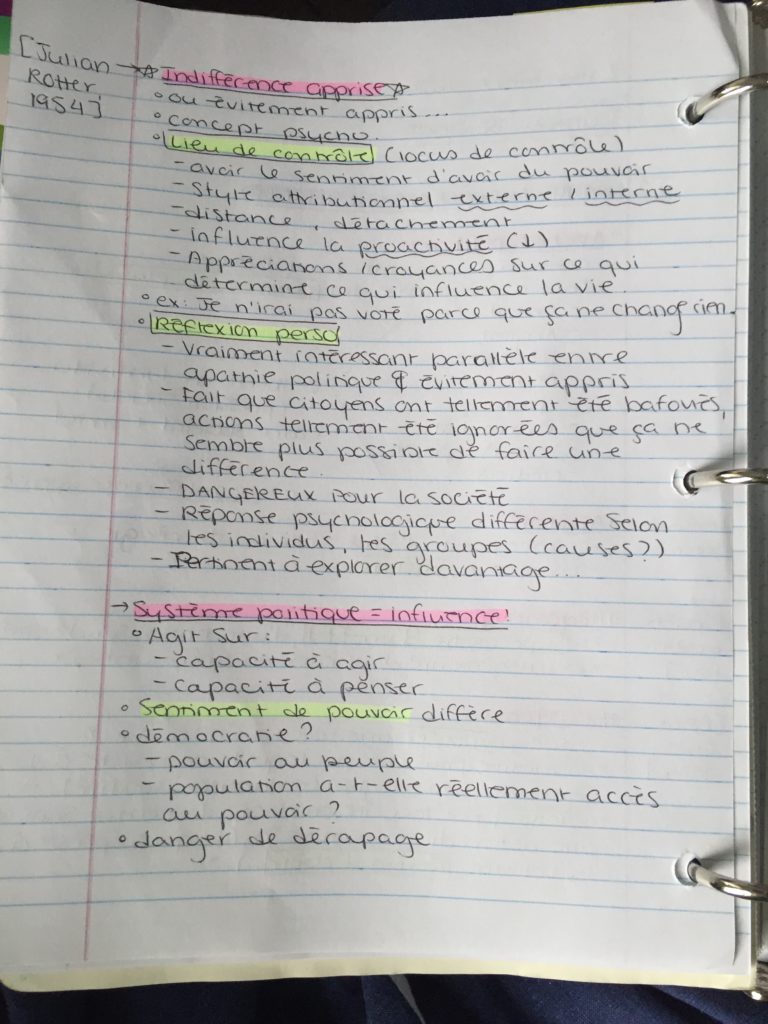 [Julian → ☆ Indifférence apprise ☆
Rotter,
1954]
° ou évitement appris....
° concept psycho.
° Lieu de contrôle (locus de contrôle)
- avoir le sentiment d'avoir du pouvoir
- Style attributionnel externe / interne
- distance, détachement
- influence la proactivité (↓)
- Appréciations/croyances sur ce qui
détermine ce qui influence la vie.
° ex: Je n'irai pas voté parce que ça ne change rien.
° Réflexion perso
- Vraiment intéressant parallèle entre
apathie politique & évitement appris
- Fait que citoyens ont tellement été bafoués,
actions tellement été ignorées que ça ne
semble plus possible de faire une
différence.
- DANGEREUX pour la société
- Réponse psychologique différente selon
les individus, les groupes (causes?)
- Pertinent à explorer davantage...
→ Système politique = influence!
° Agit sur:
- capacité à agir
- capacité à penser
° Sentiment de pouvoir diffère
° démocratie?
- pouvoir au peuple
- population a-t-elle réellement accès
au pouvoir?
° danger de dérapage